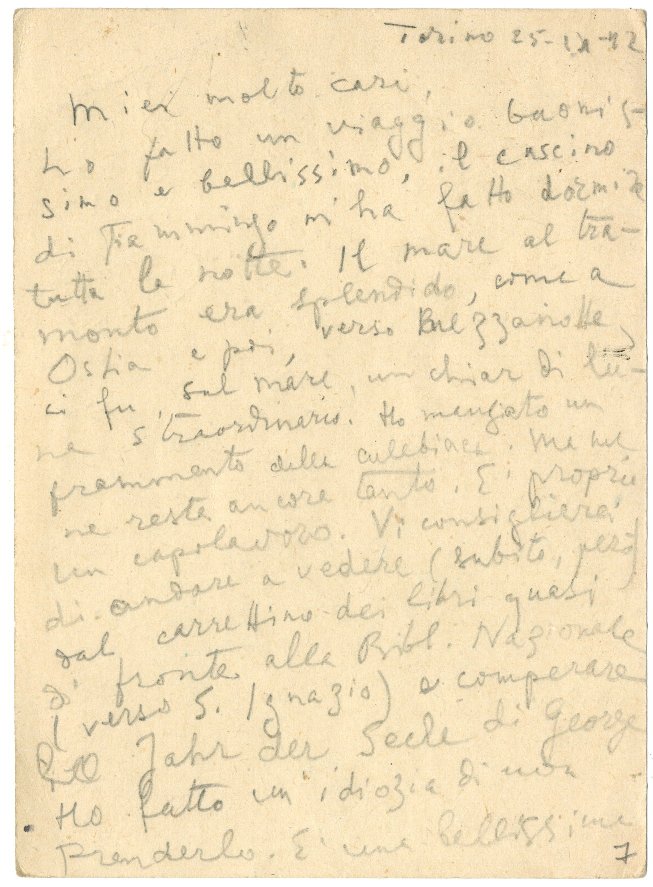 Torino 25-IX-42
Miei molto cari,
ho fatto un viaggio buonis-
simo e bellissimo, il cuscino
di Fiammingo mi ha fatto dormire
tutta la notte. Il mare al tra-
monto era splendido, come a
Ostia e poi, verso Mezzanotte,
ci fu, sul mare, un chiar di lu-
na straordinario. Ho mangiato un
frammento della culebiaca. Me ne
ne resta ancora tanto. E' proprio
un capolavoro. Vi consiglierei
di andare a vedere (subito, però)
dal carrettino dei libri quasi
di fronte alla Bibl. Nazionale
(verso S. Ignazio) e comperare
Jahr der Seele di George
Ho fatto un'idiozia di non
prenderlo. E' una bellissima
7